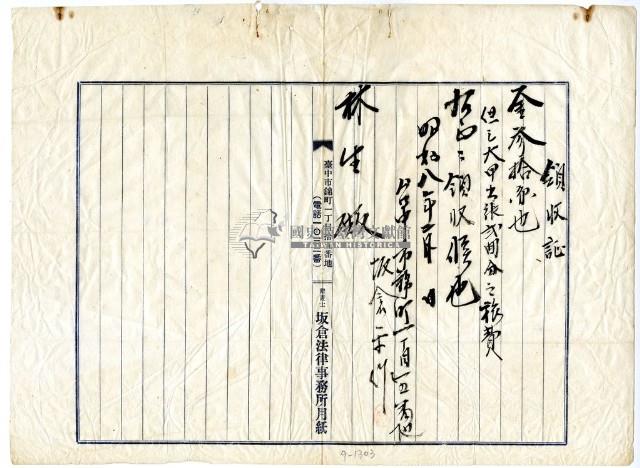 領収証
金参拾円也
但シ大甲出張弐回分之旅費
右正ニ領収候也
昭和八年 月 日
台中市錦町一丁目 番地
坂倉
林生 殿
臺中市錦町一丁目拾 番地
(電話一〇 二番)
辯護士 坂倉法律事務所用紙
國史館臺灣文獻館
TAIWAN HISTORICA
9-1303